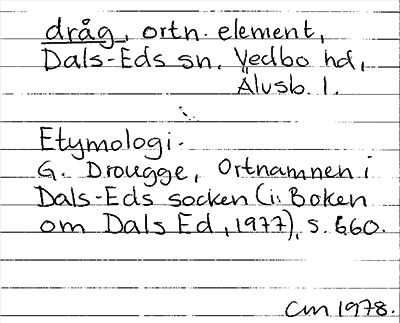 dråg, ortn. element,
Dals-Eds sn. Vedbo hd,
Älvsb. l.
Etymologi.
G. Drougge, Ortnamnen i
Dals-Eds socken (i: Boken
om Dals Ed, 1977), s. 660.
Cm 1978.